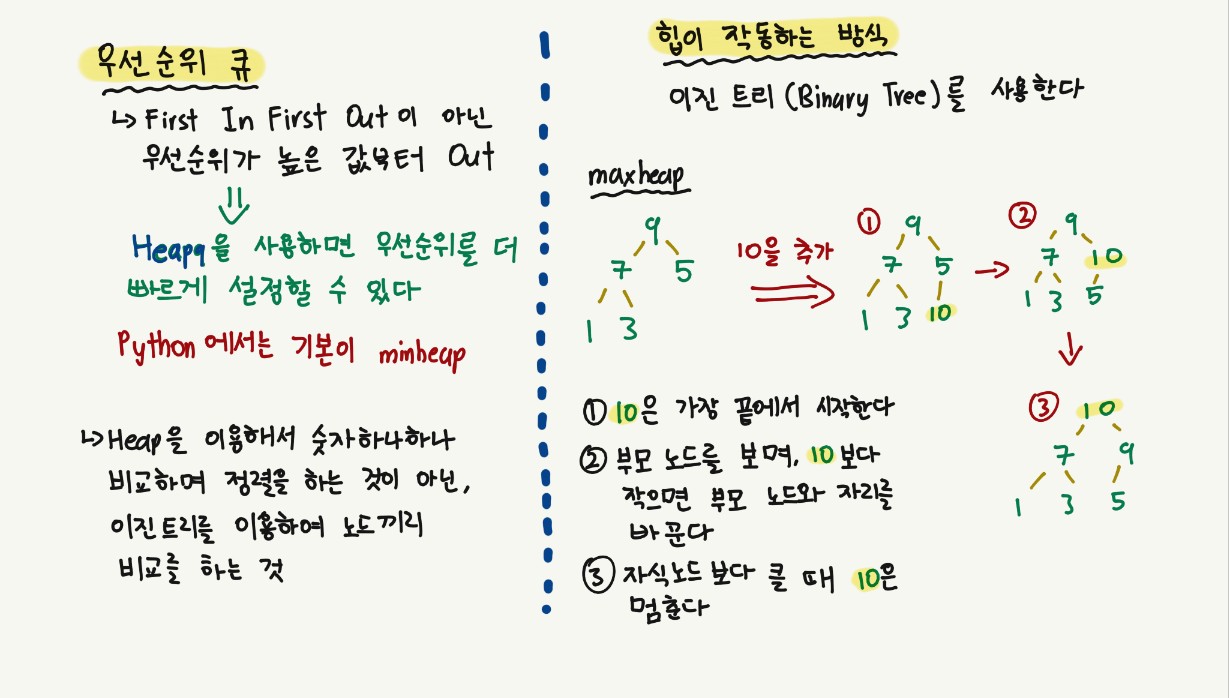 우선순위 큐
↳ First In First Out이 아닌
우선순위가 높은 값부터 Out
⇓
Heapq을 사용하면 우선순위를 더
빠르게 설정할 수 있다
Python에서는 기본이 minheap
↳ Heap을 이용해서 숫자하나하나
비교하며 정렬을 하는 것이 아닌,
이진트리를 이용하여 노드끼리
비교를 하는 것
힙이 작동하는 방식
이진 트리 (Binary Tree)를 사용한다
maxheap
9
7 5
1 3
10을 추가
⇒
① 9
7 5
1 3 10
→
② 9
7 10
1 3 5
↓
③ 10
7 9
1 3 5
① 10은 가장 끝에서 시작한다
② 부모 노드를 보며, 10보다
작으면 부모 노드와 자리를
바꾼다
③ 자식노드 보다 클 때 10은
멈춘다